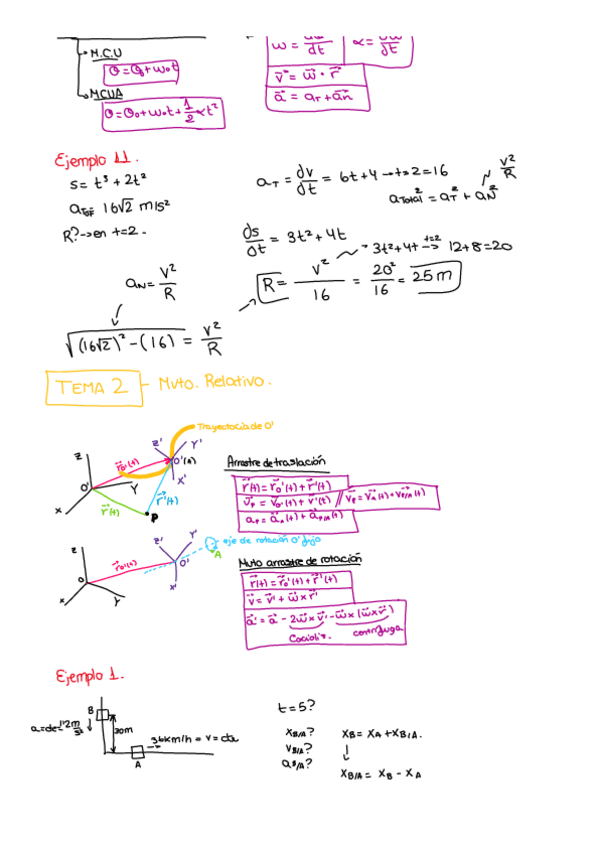 M.C.U
θ=θ₀+ω₀t
MCUA
θ=θ₀+ω₀t+1/2 αt²
ω = dω/dt
α = dω/dt
v⃗ = ω⃗ · r⃗
a⃗ = aT + a⃗n
Ejemplo 11.
s = t³ + 2t²
16√2 m/s²
R? → en t=2.
aT = dv/dt = 6t+4 → t=2=16
a²Total = a²T + a²N
v²/R
ds/dt = 3t²+4t
3t²+4t t=2 → 12+8=20
aN = v²/R
R = v²/16 = 20²/16 = 25 m
√((16√2)² - (16)) = v²/R
TEMA 2 - Mvto. Relativo.
Trayectoria de O'
Z' Y'
Z
r⃗o'(t)
O'(A)
X'
O' Y
r⃗'(t)
r⃗'(t)
X
P
Arrastre de traslación
r⃗(t) = r⃗o'(t) + r⃗'(t)
v⃗p = v⃗o'(t) + v'(t) // v⃗p = v⃗A(t) + v⃗P/A(t)
a⃗p = a⃗A(t) + a⃗P/A(t)
Z
Z' Y'
eje de rotación O' fijo
A
r⃗o'(t)
O'
O
X'
X Y
Mvto arrastre de rotación
r⃗(t) = r⃗o'(t) + r⃗'(t)
v⃗ = v⃗' + ω⃗ x r⃗'
a⃗' = a⃗ - 2ω⃗ x v⃗' - ω⃗ x (ω⃗ x r⃗')
Coriolis.
centrífuga
Ejemplo 1.
B
a=cte=1'2 m/s²
30m
36km/h = v = cte
A
t=5?
xB/A?
vB/A?
aB/A?
xB = xA + xB/A.
↓
xB/A = xB - xA